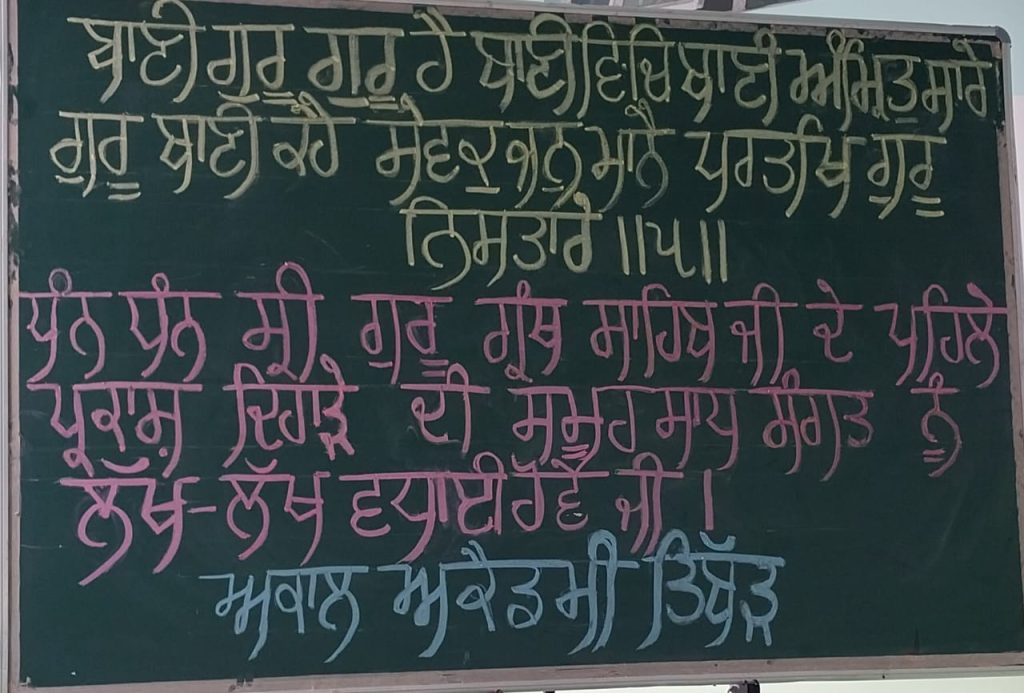 ਬਾਣੀ ਗੁਰੂ ਗੁਰੂ ਹੈ ਬਾਣੀ ਵਿਚਿ ਬਾਣੀ ਅੰਮ੍ਰਿਤੁ ਸਾਰੇ
ਗੁਰੁ ਬਾਣੀ ਕਹੈ ਸੇਵਕੁ ਜਨੁ ਮਾਨੈ ਪਰਤਖਿ ਗੁਰੂ
ਨਿਸਤਾਰੇ ॥੫॥
ਧੰਨ ਧੰਨ ਸ੍ਰੀ ਗੁਰੂ ਗ੍ਰੰਥ ਸਾਹਿਬ ਜੀ ਦੇ ਪਹਿਲੇ
ਪ੍ਰਕਾਸ਼ ਦਿਹਾੜੇ ਦੀ ਸਮੂਹ ਸਾਧ ਸੰਗਤ ਨੂੰ
ਲੱਖ-ਲੱਖ ਵਧਾਈ ਹੋਵੇ ਜੀ ।
ਅਕਾਲ ਅਕੈਡਮੀ ਤਿੱਬੜ